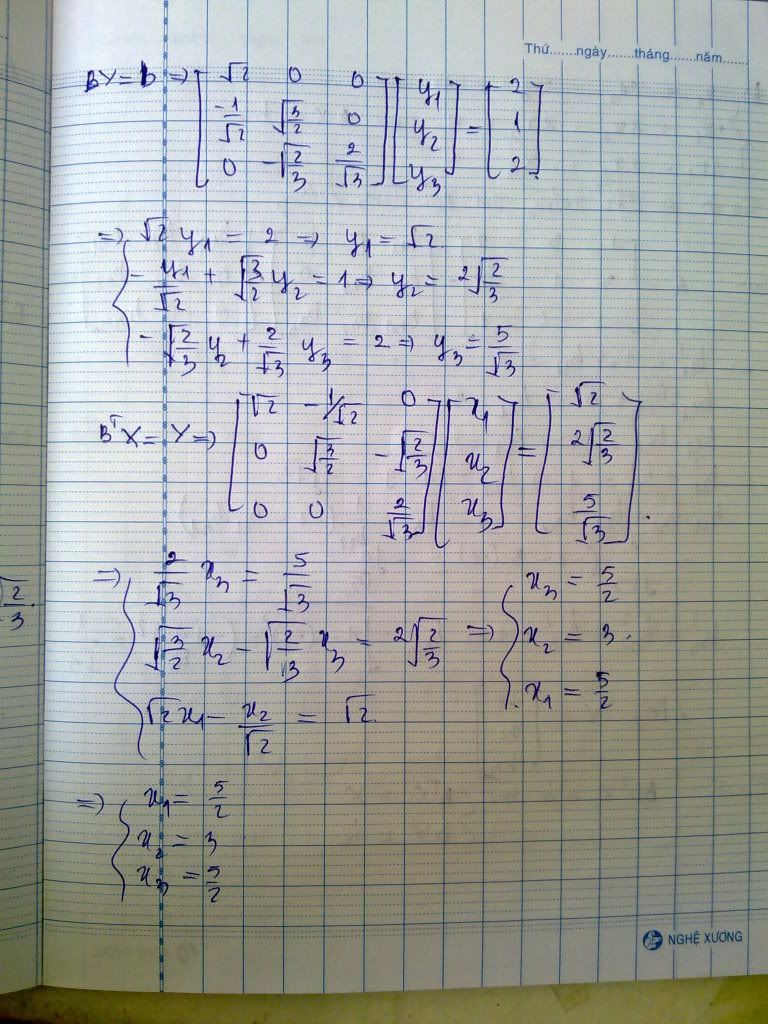 Thứ.......ngày.......tháng.......năm.......
BY = b ⇒ [√2 0 0; -1/√2 √(3/2) 0; 0 -√(2/3) 2/√3] [y₁; y₂; y₃] = [2; 1; 2].
⇒ { √2 y₁ = 2 ⇒ y₁ = √2
- y₁/√2 + √(3/2) y₂ = 1 ⇒ y₂ = 2√(2/3)
- √(2/3) y₂ + 2/√3 y₃ = 2 ⇒ y₃ = 5/√3
BᵀX = Y ⇒ [√2 -1/√2 0; 0 √(3/2) -√(2/3); 0 0 2/√3] [x₁; x₂; x₃] = [√2; 2√(2/3); 5/√3].
⇒ { 2/√3 x₃ = 5/√3
√(3/2) x₂ - √(2/3) x₃ = 2√(2/3)
√2 x₁ - x₂/√2 = √2
⇒ { x₃ = 5/2
x₂ = 3.
x₁ = 5/2
⇒ { x₁ = 5/2
x₂ = 3
x₃ = 5/2
√(2/3).
NGHỆ XƯƠNG